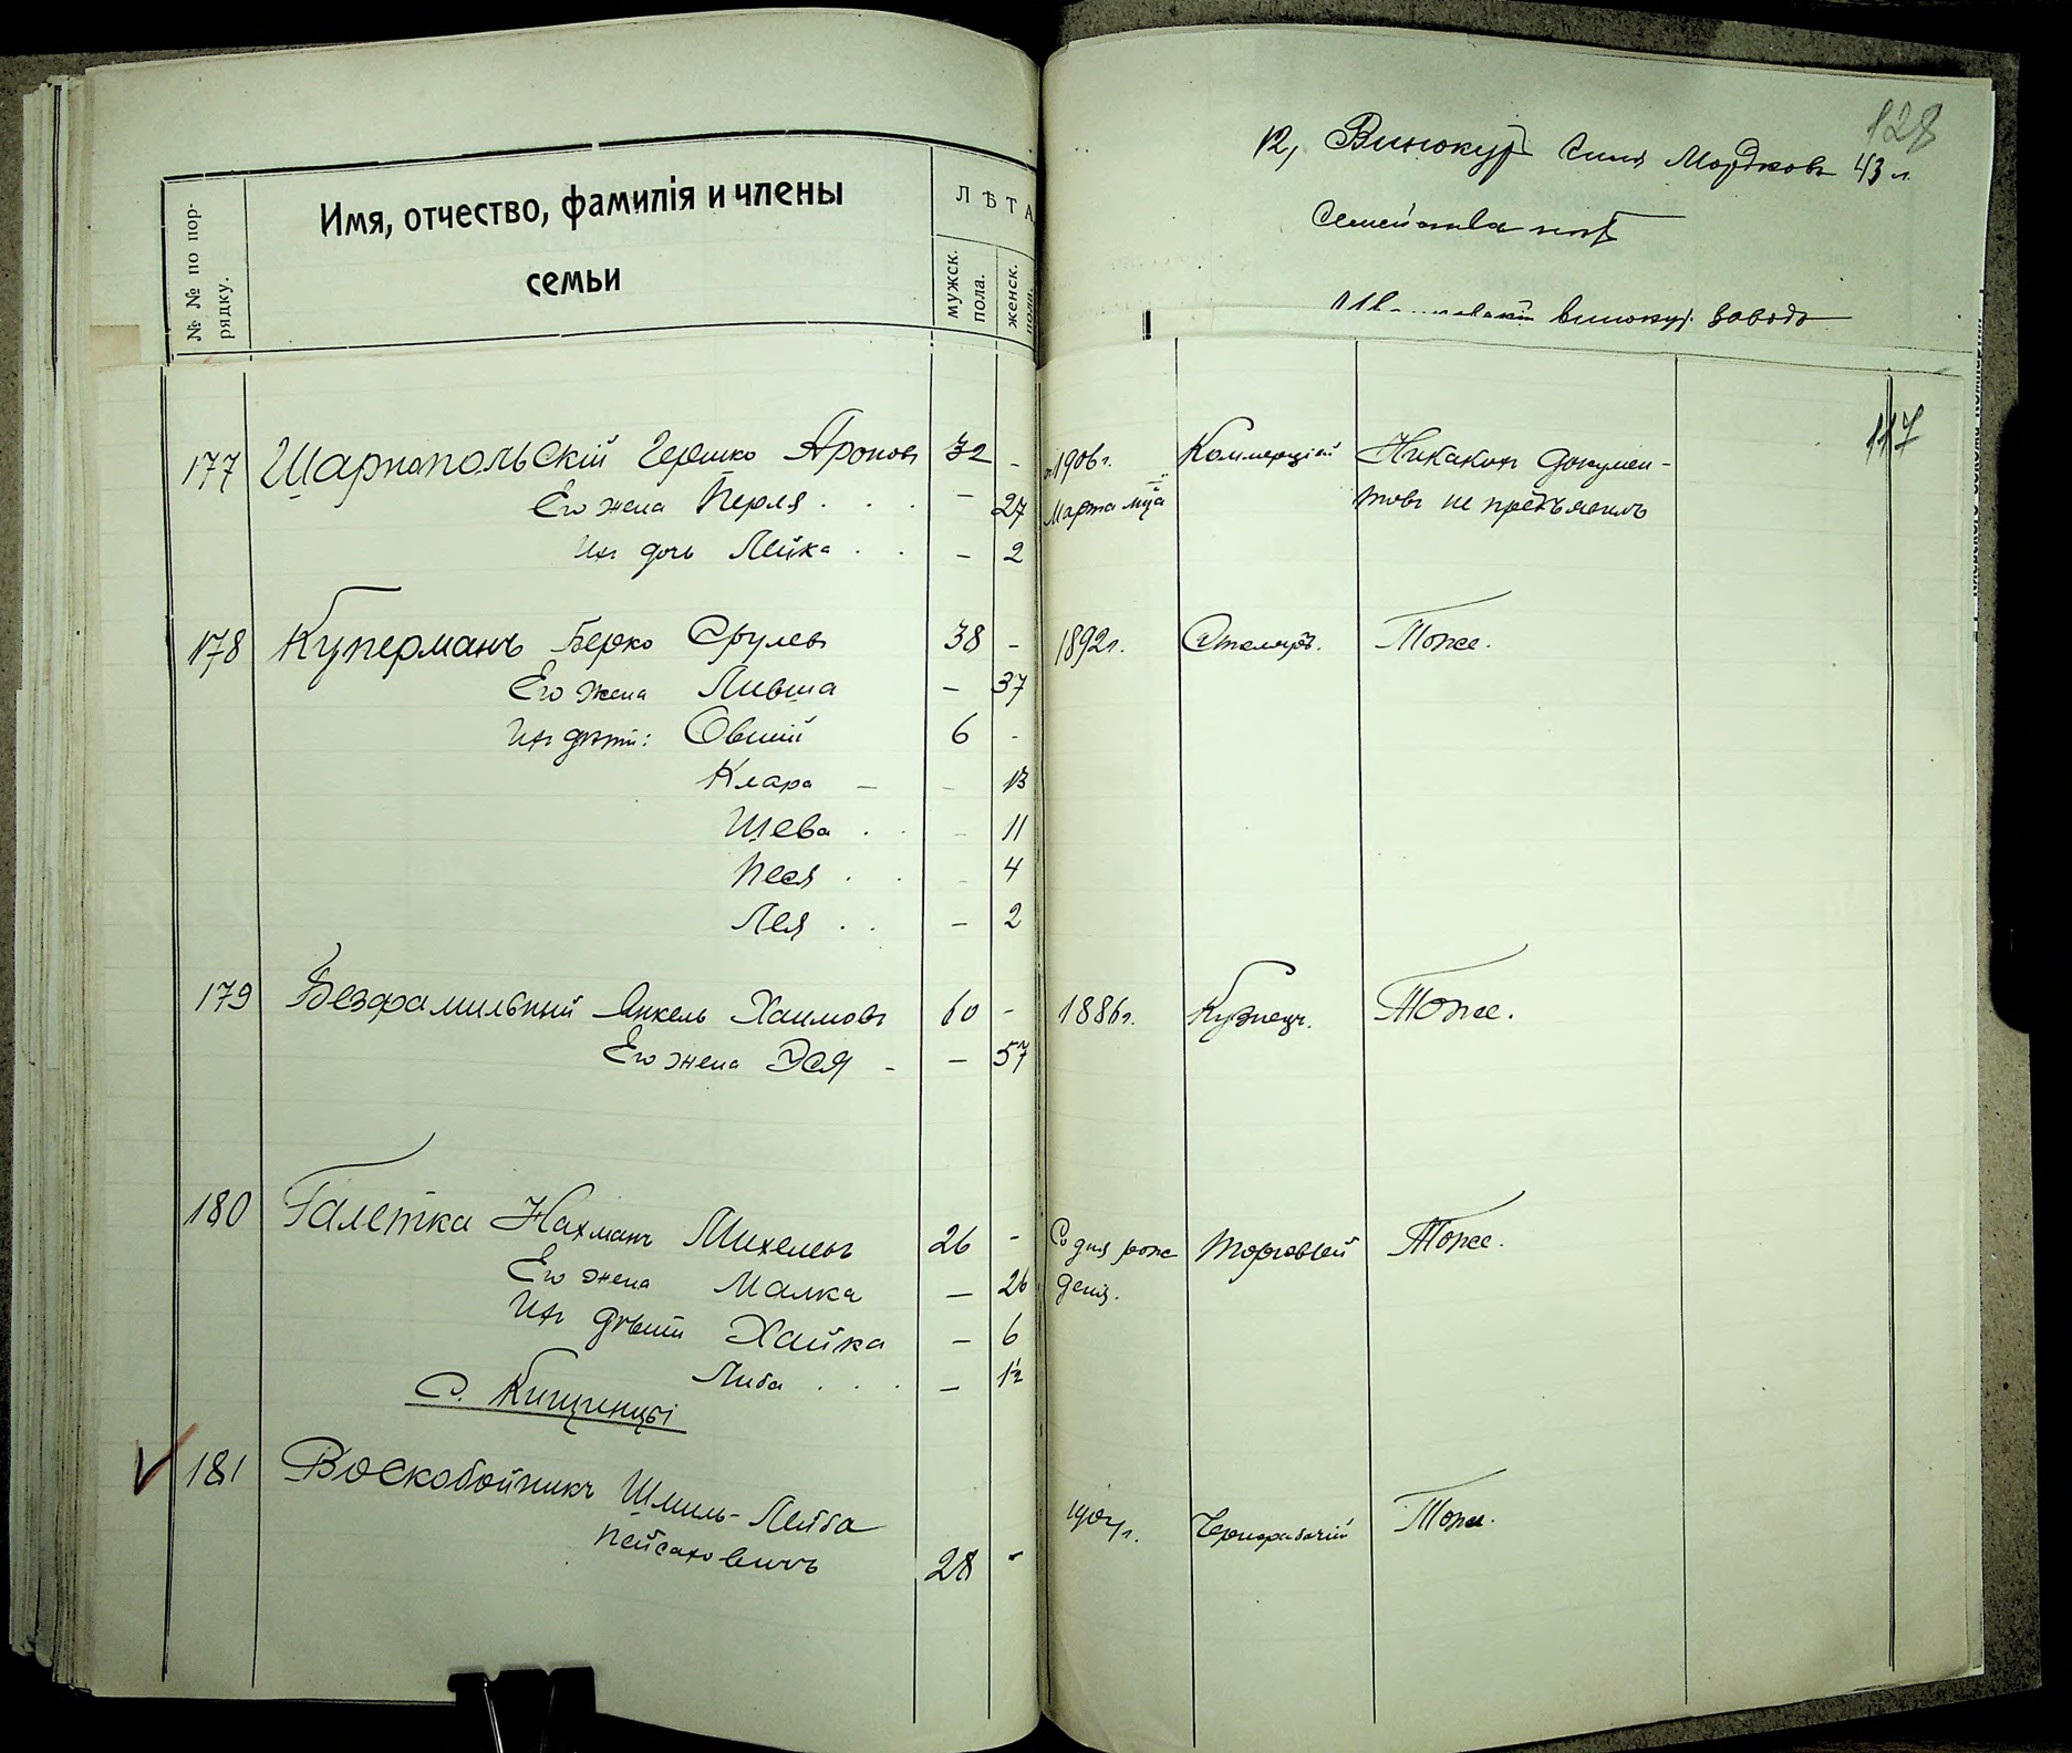 № № по пор-
рядку.
Имя, отчество, фамилія и члены
семьи
ЛѢТА
мужск.
пола.
женск.
пола.
128
12, Винокуръ Мордковъ 43 л.
Семейства нѣтъ
винокур. заводъ
117
177 Шарнопольскій Гершко Ароновъ 32 - 1906 г. Коммерціей Никакихъ докумен-
Его жена Перля . . . - 27 Марта мца товъ не предъявилъ
Ихъ дочь Лейка . . - 2
178 Куперманъ Берко Срулевъ 38 - 1892 г. Столяръ. Тоже.
Его жена Ливша - 37
Ихъ дѣти: Овшій 6 -
Клара - - 13
Шева . . - 11
Песя . . - 4
Лея . . - 2
179 Безфамильный Янкель Хаимовъ 60 - 1886 г. Кузнецъ. Тоже.
Его жена Эся - - 57
180 Галетка Нахманъ Михелевъ 26 - Со дня рож Торговлей Тоже.
Его жена Малка - 26 денія.
Ихъ дѣти Хайка - 6
Либа . . . - 1½
С. Кищинцы
181 Воскобойникъ Шмиль-Лейба 1904 г. Чернорабочій Тоже.
Пейсаховичъ 28 -